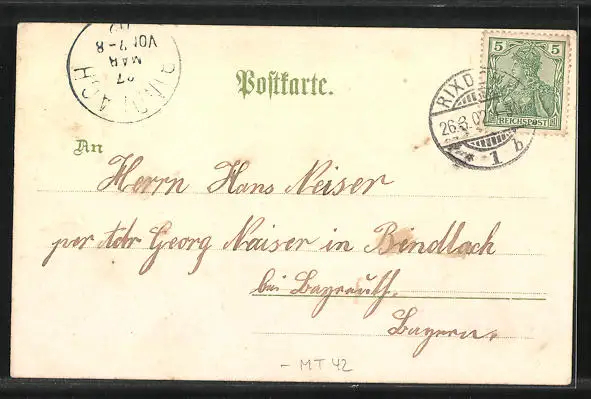 BINDLACH
27
MAR
VOR 7-8
02
Postkarte.
5 5
REICHSPOST
RIXDORF
26.3.02
1 b
An
Herrn Hans Neiser
per Adr Georg Naiser in Bindlach
bei Bayreuth.
Bayern.
- MT 42